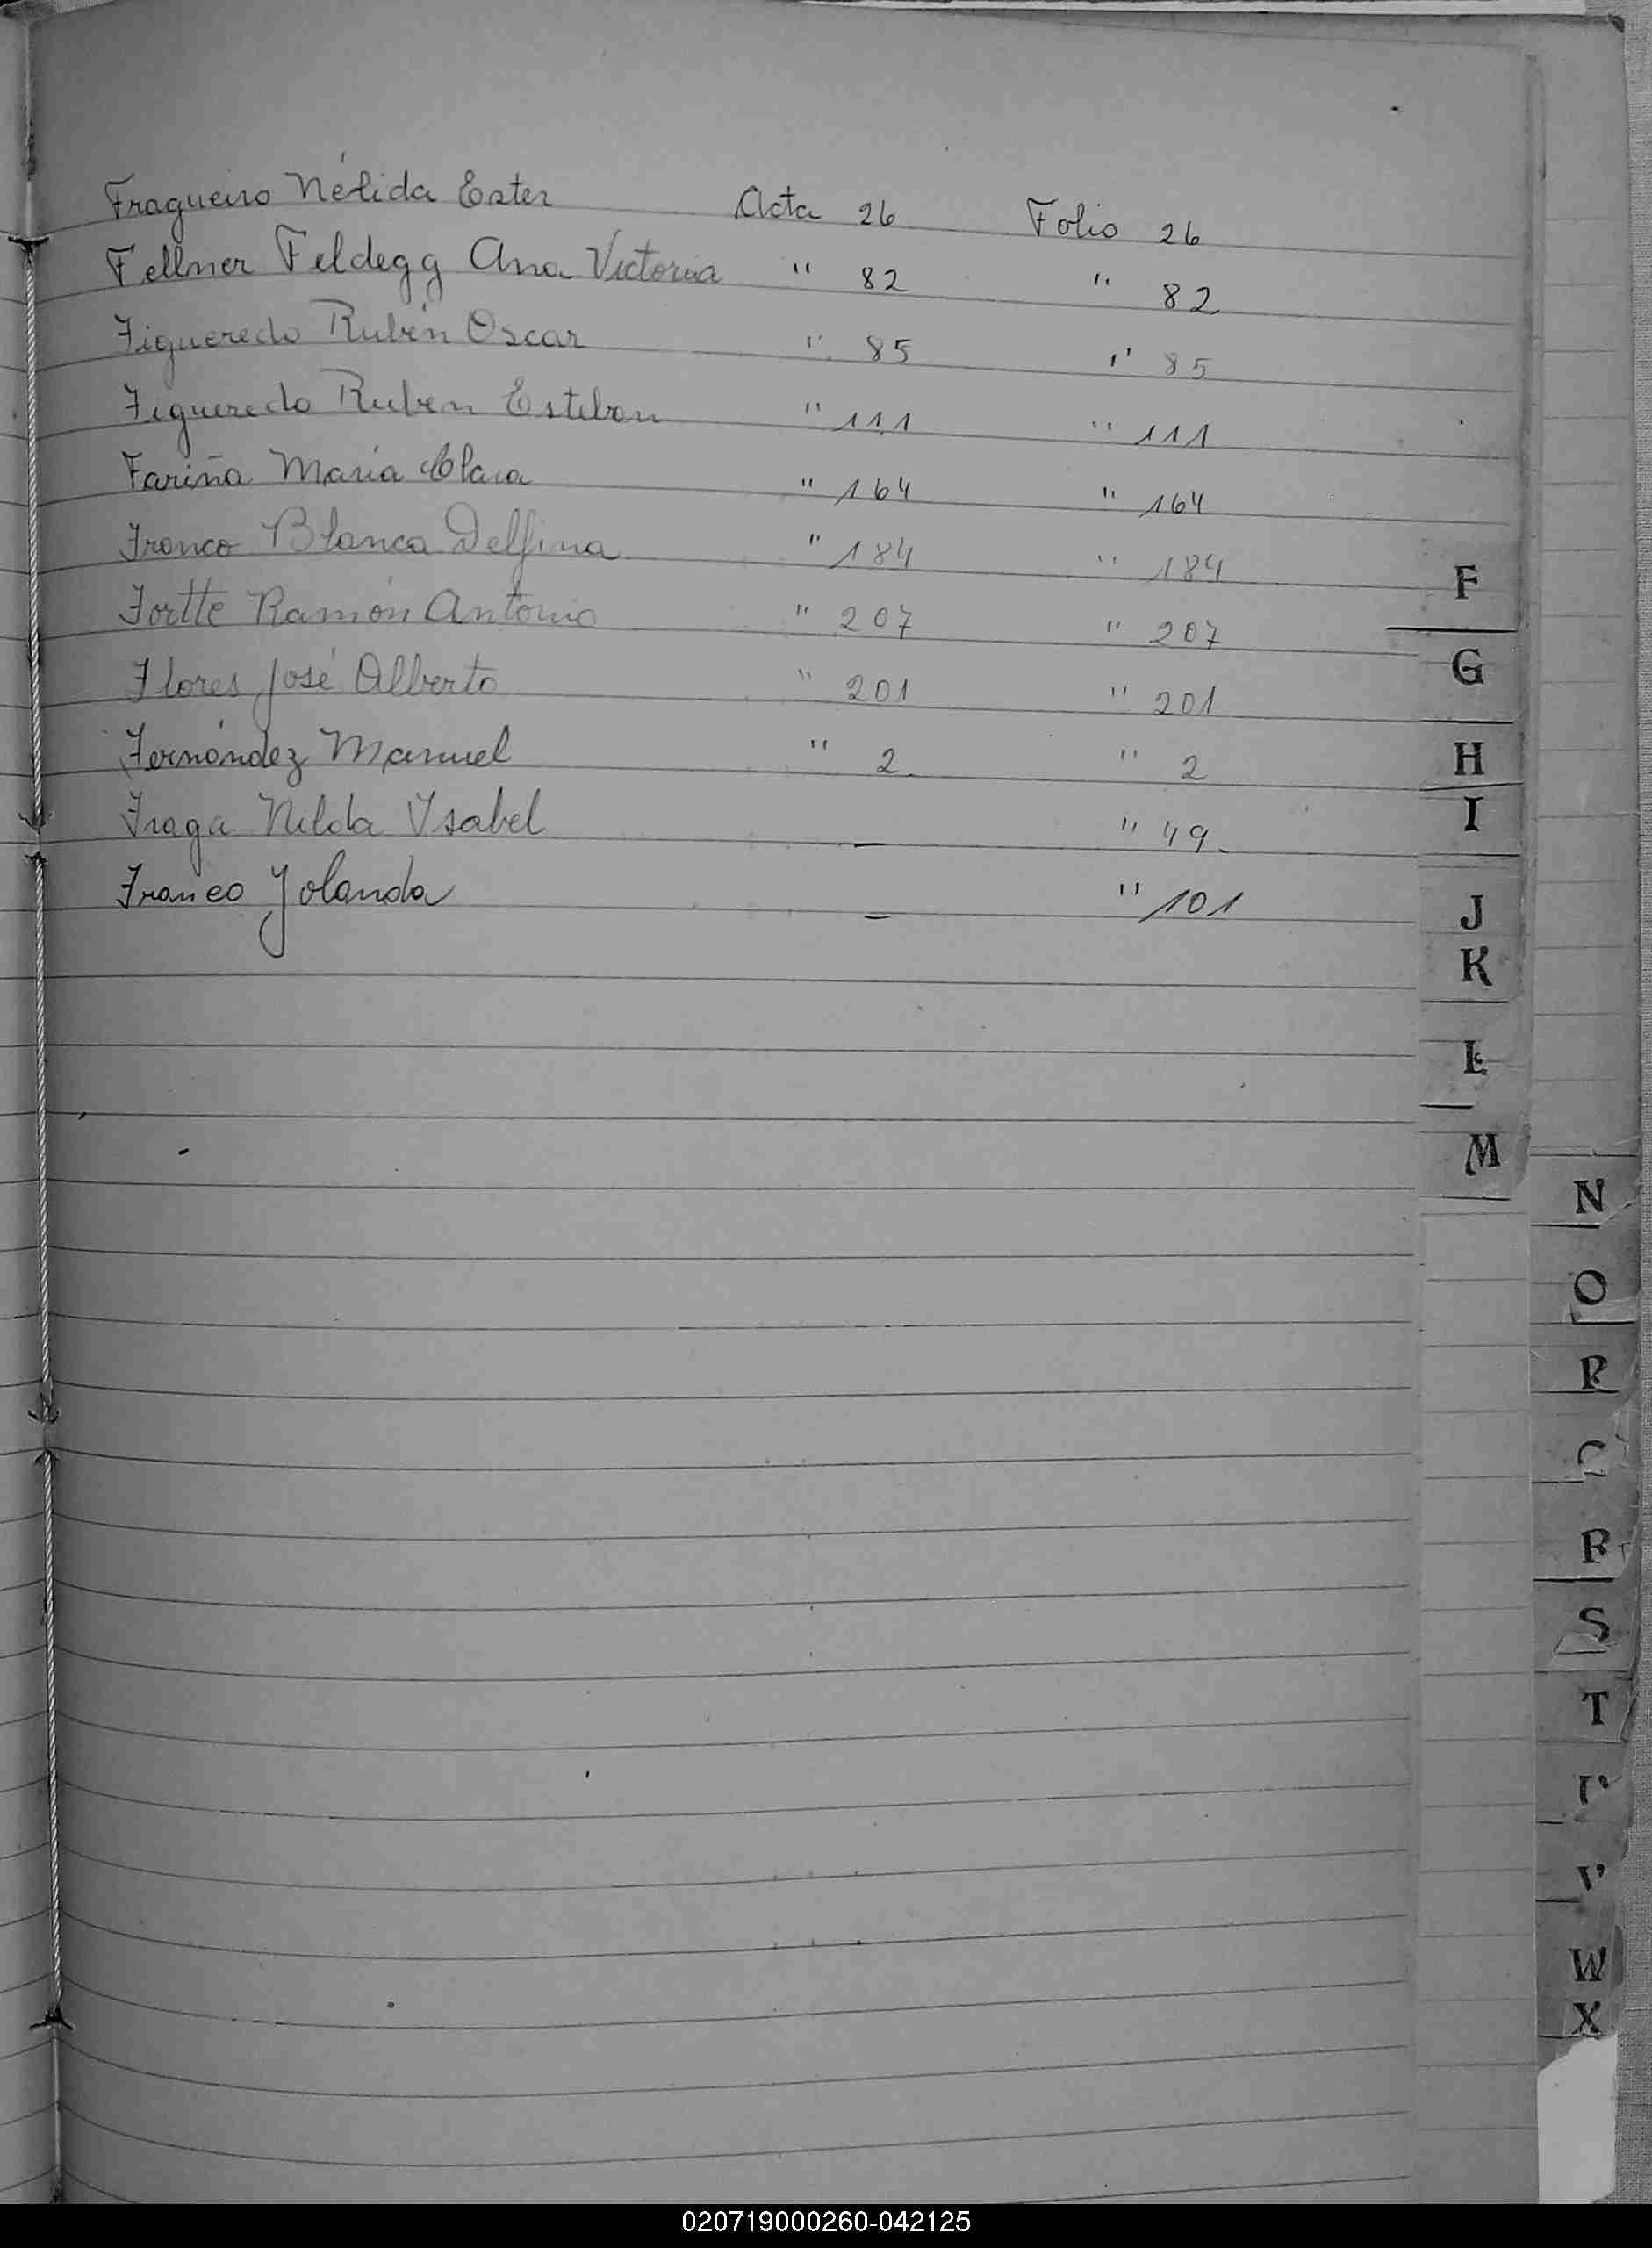 Fragueiro Nélida Ester Acta 26 Folio 26
Fellner Feldegg Ana Victoria " 82 " 82
Figueredo Rubén Oscar " 85 " 85
Figueredo Ruben Esteban " 111 " 111
Fariña Maria Clara " 164 " 164
Franco Blanca Delfina " 184 " 184
Fortte Ramón Antonio " 207 " 207
Flores José Alberto " 201 " 201
Fernández Manuel " 2 " 2
Fraga Nilda Ysabel — " 49.
Franco Yolanda — " 101
F
G
H
I
J
K
L
M
N
O
P
R
S
T
V
W
X
020719000260-042125